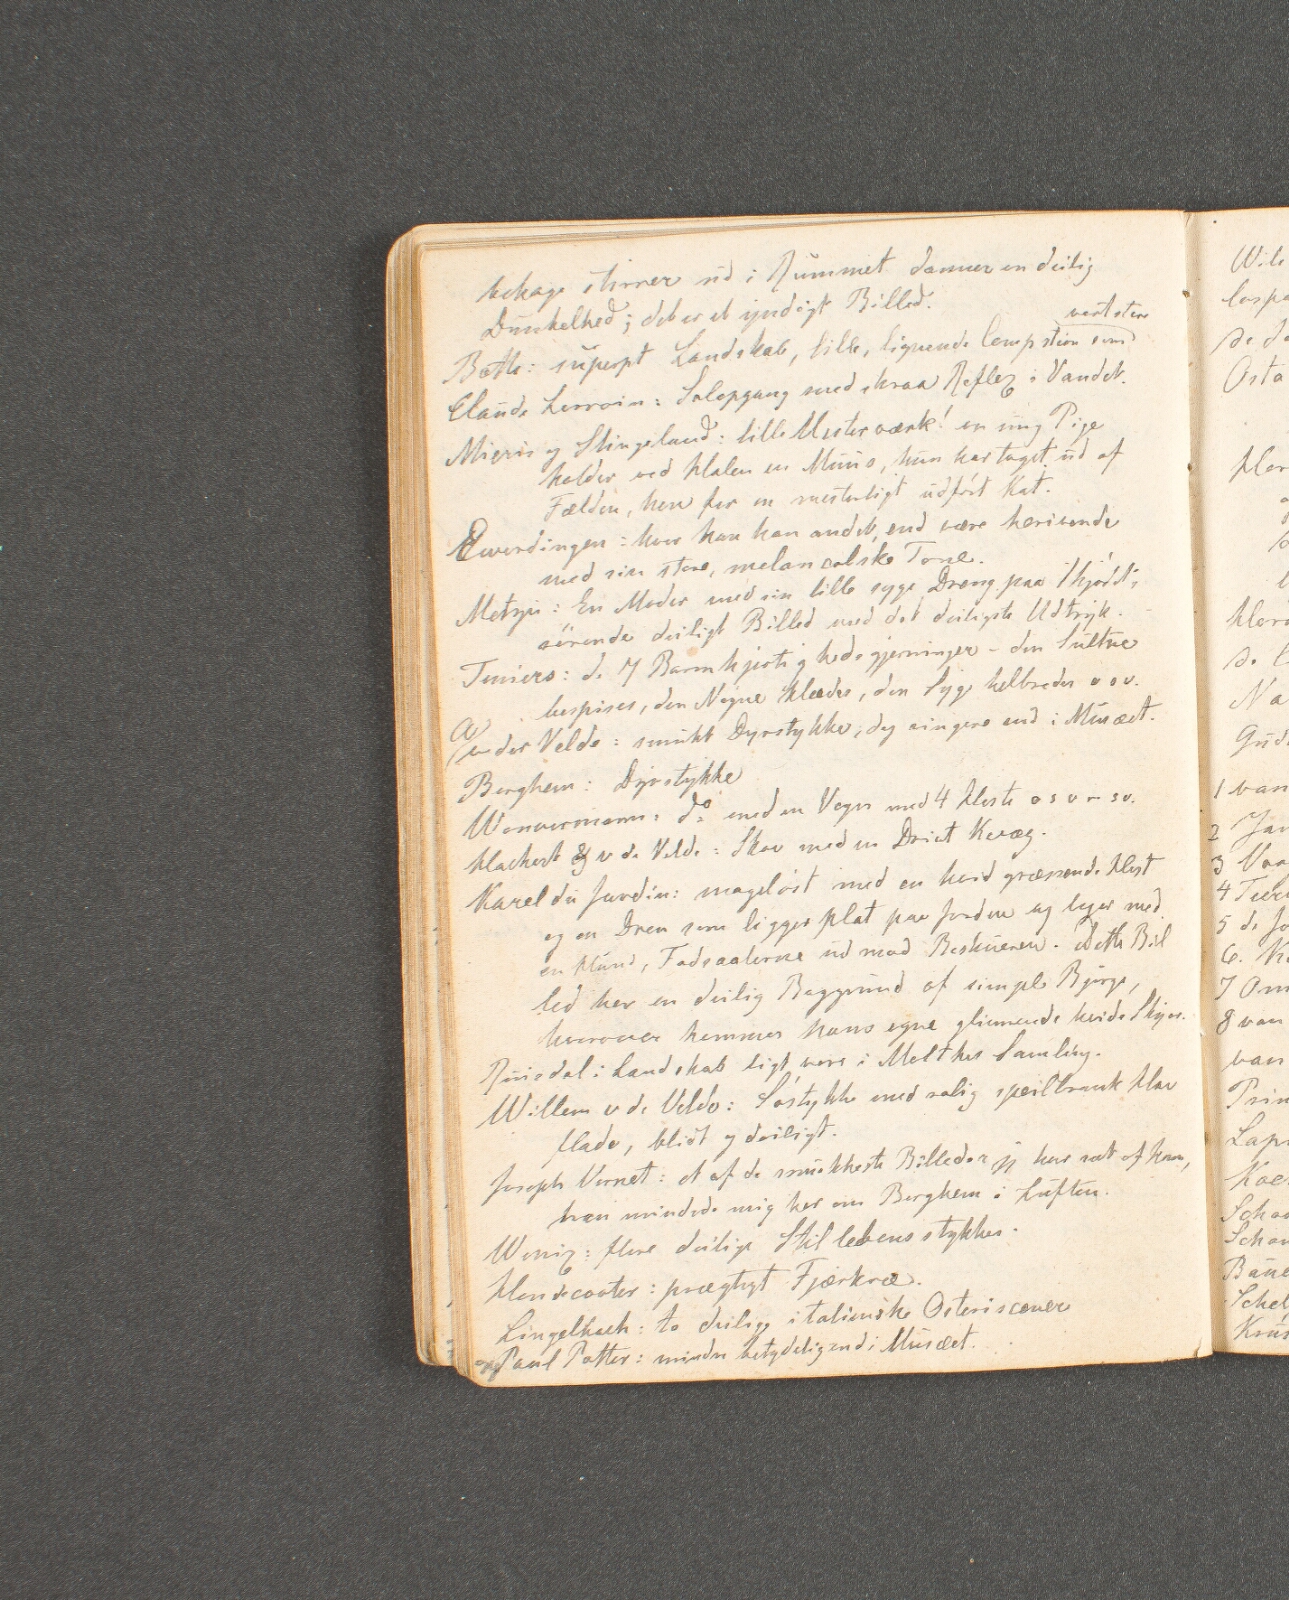 tekage stirrer ud i Rummet danner en deilig
Dunkelhed; det er et yndigt Billed.
vort store
Both: superpt Landskab, lille, lignende Compstion som
Claude Lorrain: Solopgang med skraa Reflex i Vandet.
Mieris og Slingeland: lille Mesterværk! en ung Pige
holder ved Halen en Muus, hun har taget ud af
Fælden, hen for en mesterligt udført Kat.
Ewerdingen: hvor kan han andet, end være henrivende
med sin store, melancolske Tone.
Metzu: En Moder med sin lille syge Dreng paa Skjødet;
rørende deiligt Billed med det deiligste Udtryk.
Teniers: de 7 Barmhjertighedsgjerninger - den Sultne
bespises, den Nøgne klædes, den Syge helbredes o s v.
A
v der Velde: smukt Dyrstykke, dog ringere end i Musæet.
Berghem: Dyrstykke
Wouvermann: do med en Vogn med 4 Heste o s v - sv.
Hackert & v de Velde: Skov med en Drivt Kvæg.
Karel du Jardin: mageløst med en hvid græssende Hest
og en Dreng som ligger plat paa Jorden og leger med
en Hund, Fodsaalerne ud mod Beskueren. Dette Bil
led har en deilig Baggrund af simple Bjerge,
hvorover kommer hans egne glimrende hvide Skyer.
Ruisdal: Landskab ligt vore i Molthes Samling.
Willem v de Velde: Søstykke med rolig speilblank Hav
flade, blidt og deiligt.
Joseph Vernet: et af de smukkeste Billeder jeg har set af ham,
han mindede mig her om Berghem i Luften.
Wenix: flere deilige Stillebensstykker.
Hondecooter: prægtigt Fjærkræ.
Lingelbach: to deilige italienske Osteriscener
Paul Potter: mindre betydelig end i Musæet.
Wil
Osta
Hor
Na
Gud
1 van
2 Jan
3
4
5 de Jo
6.
7 Om
8 van
van
Prin
Koe